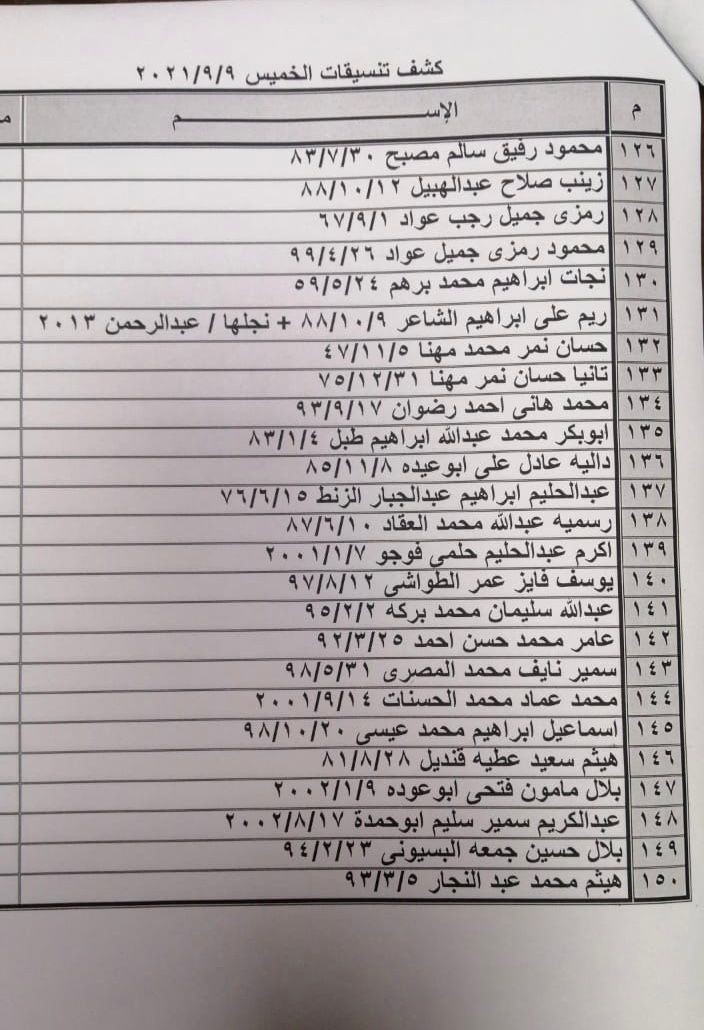 كشف تنسيقات الخميس ٢٠٢١/٩/٩
م الإســـــــم م
١٢٦ محمود رفيق سالم مصبح ٨٣/٧/٣٠
١٢٧ زينب صلاح عبدالهبيل ٨٨/١٠/١٢
١٢٨ رمزى جميل رجب عواد ٦٧/٩/١
١٢٩ محمود رمزى جميل عواد ٩٩/٤/٢٦
١٣٠ نجات ابراهيم محمد برهم ٥٩/٥/٢٤
١٣١ ريم على ابراهيم الشاعر ٨٨/١٠/٩ + نجلها / عبدالرحمن ٢٠١٣
١٣٢ حسان نمر محمد مهنا ٤٧/١١/٥
١٣٣ تانيا حسان نمر مهنا ٧٥/١٢/٣١
١٣٤ محمد هانى احمد رضوان ٩٣/٩/١٧
١٣٥ ابوبكر محمد عبدالله ابراهيم طبل ٨٣/١/٤
١٣٦ داليه عادل على ابوعيده ٨٥/١١/٨
١٣٧ عبدالحليم ابراهيم عبدالجبار الزنط ٧٦/٦/١٥
١٣٨ رسميه عبدالله محمد العقاد ٨٧/٦/١٠
١٣٩ اكرم عبدالحليم حلمي فوجو ٢٠٠١/١/٧
١٤٠ يوسف فايز عمر الطواشى ٩٧/٨/١٢
١٤١ عبدالله سليمان محمد بركه ٩٥/٢/٢
١٤٢ عامر محمد حسن احمد ٩٢/٣/٢٥
١٤٣ سمير نايف محمد المصرى ٩٨/٥/٣١
١٤٤ محمد عماد محمد الحسنات ٢٠٠١/٩/١٤
١٤٥ اسماعيل ابراهيم محمد عيسى ٩٨/١٠/٢٠
١٤٦ هيثم سعيد عطيه قنديل ٨١/٨/٢٨
١٤٧ بلال مامون فتحى ابوعوده ٢٠٠٢/١/٩
١٤٨ عبدالكريم سمير سليم ابوحمدة ٢٠٠٢/٨/١٧
١٤٩ بلال حسين جمعه البسيونى ٩٤/٢/٢٣
١٥٠ هيثم محمد عبد النجار ٩٣/٣/٥